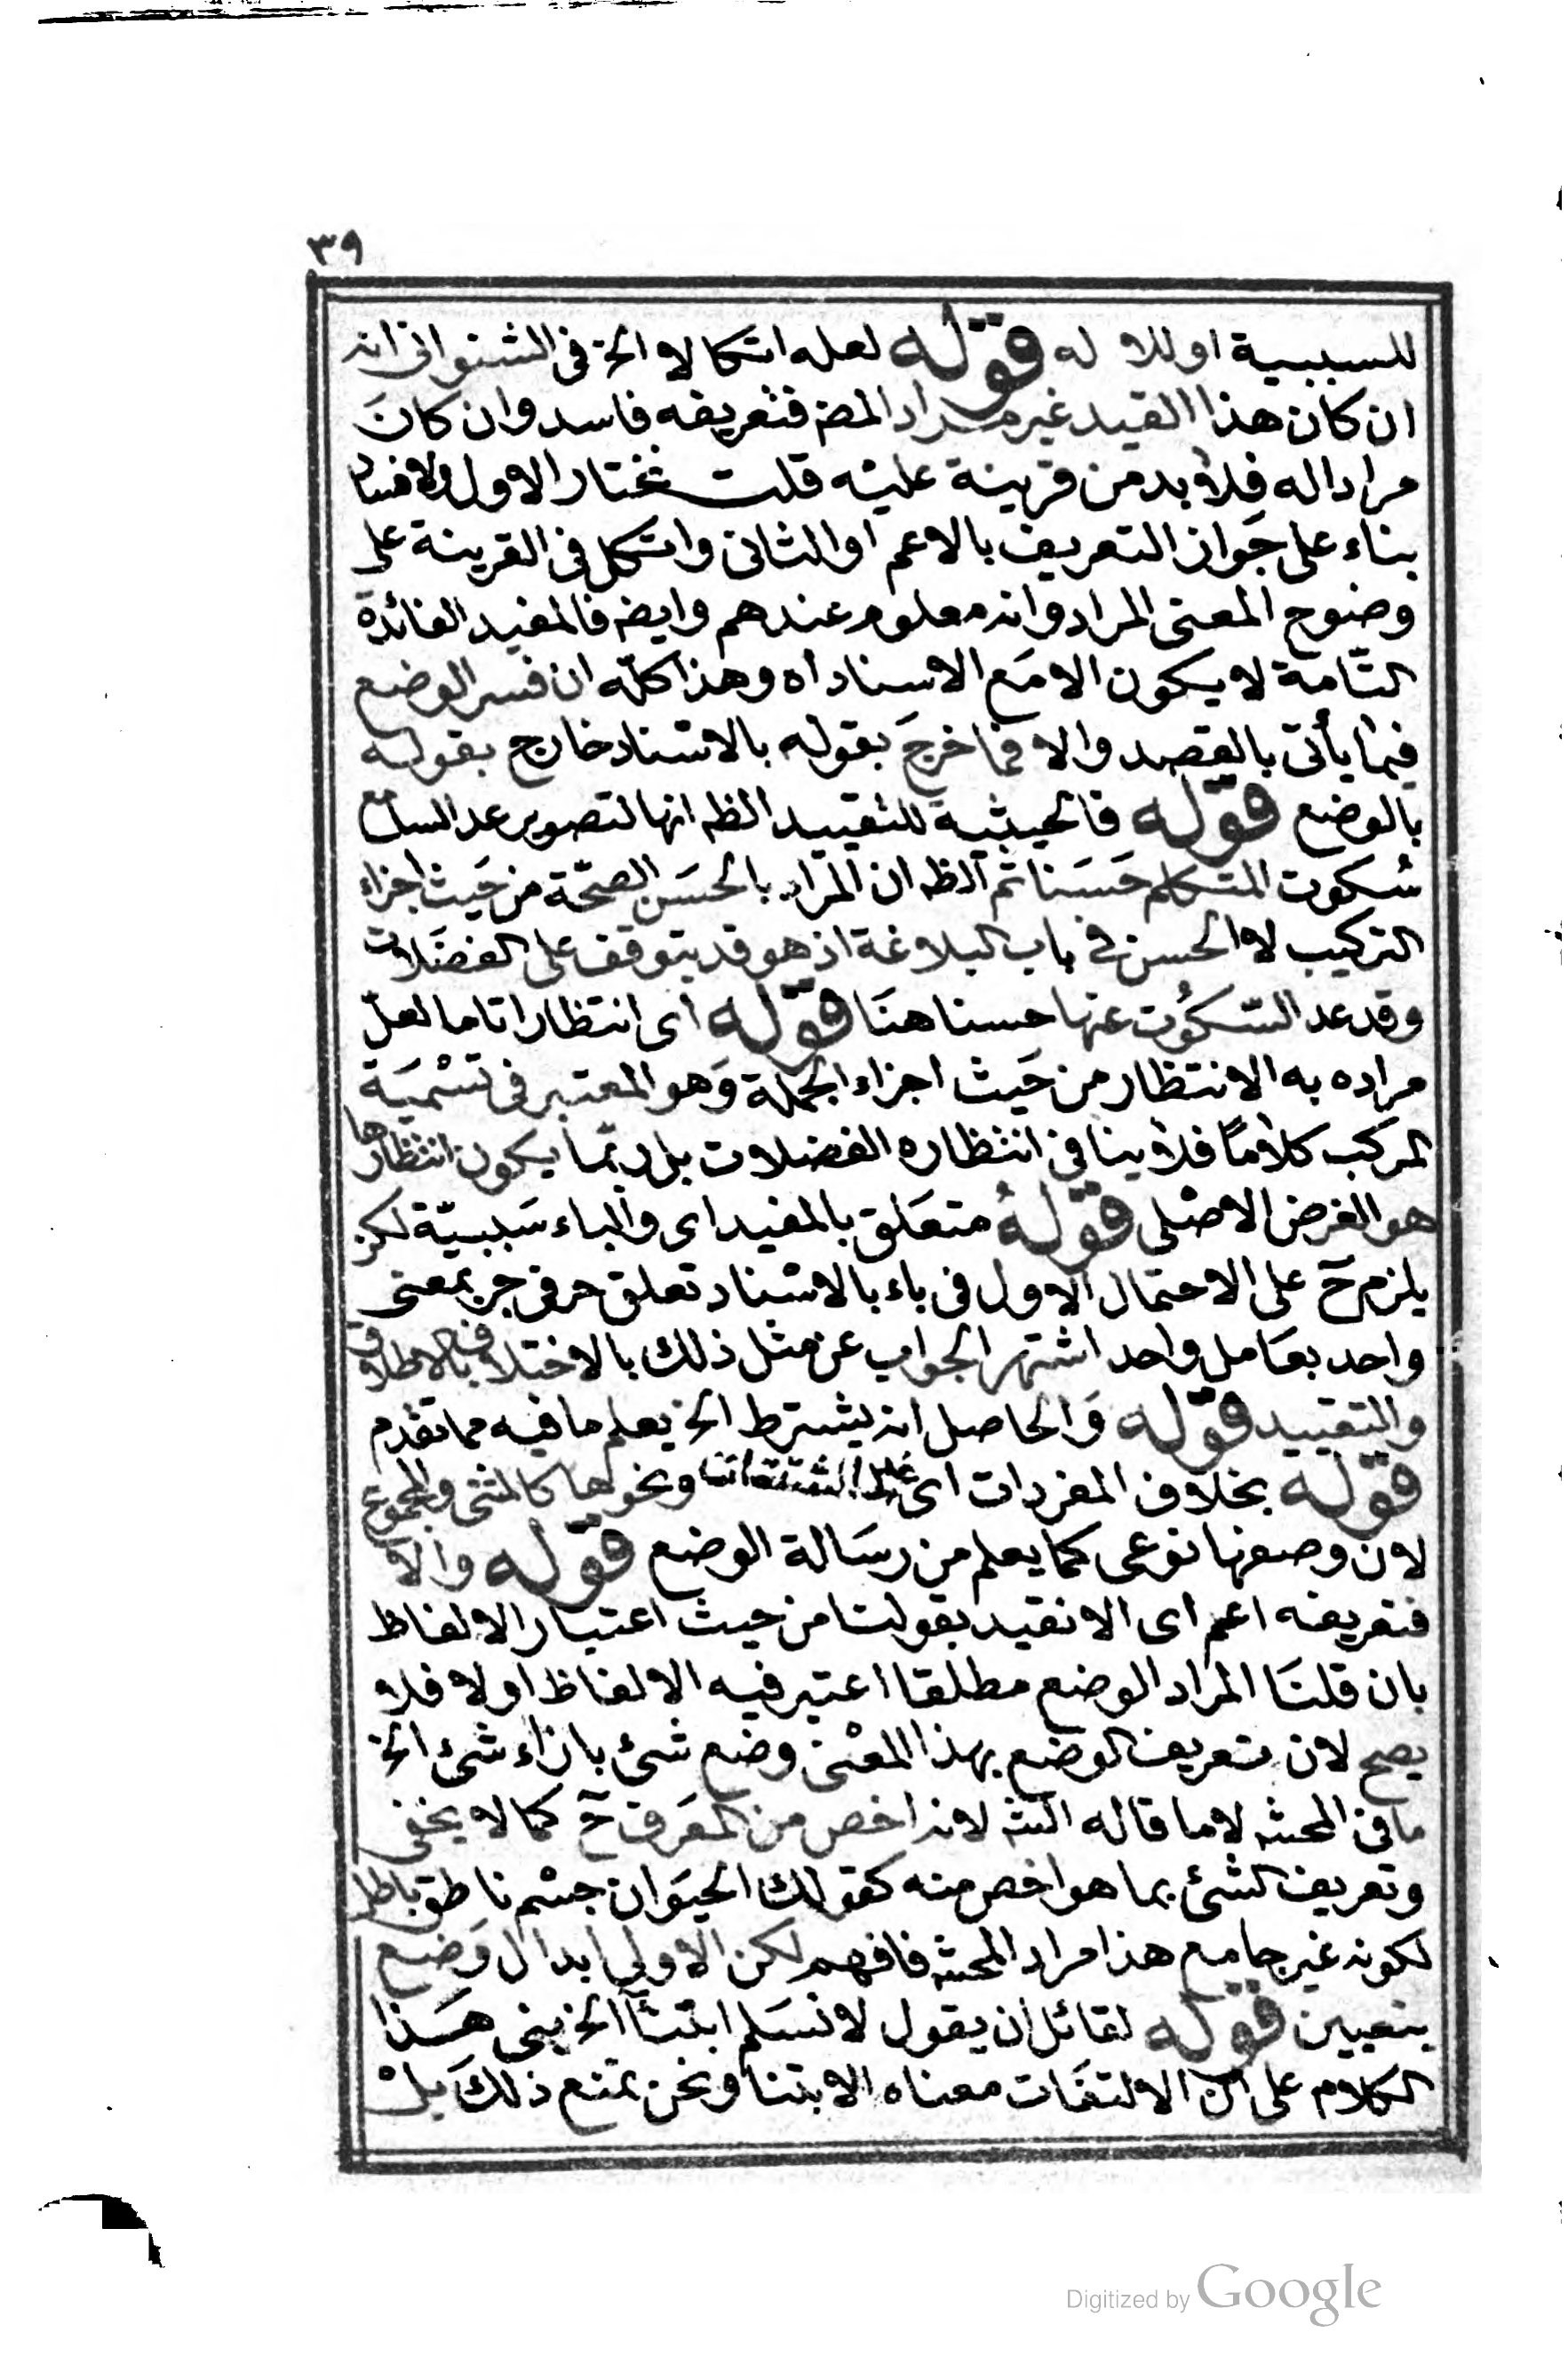 ٣٩
للسببية او للا له قوله لعله اتكالا الخ فى الشنوانى انه
ان كان هذا القيد غير مراد المص فتعريفه فاسد وان كانَ
مرادا له فلا بد من قرينة عليه قلت نختار الاول ولا فساد
بناء على جَواز التعريف بالاعم او الثانى واتكل فى القرينة على
وضوح المعنى المراد وانه معلوم عندهم وايض فالمفيد الفائدة
التّامة لا يكون الا مَع الاسناد اه وهذا كلّه ان فسر الوضع
فيما يأتى بالقصد والا فما خرجَ بقوله بالاسناد خارج بقوله
بالوضع قوله فالحيثية للتقييد الظ انها لتصوير عد السامع
سُكوت المتكلم حَسَنا ثم الظ ان المرَاد بالحسَن الصحّة من حَيث اجزاء
التركيب لا الحسن فى باب البلاغة اذ هو قد يتوقف على الفضَلات
وقد عد السّكُوت عنها حسنا هنَا قوله اى انتظارا تاما لعلّ
مراده به الانتظار من حَيث اجزاء الجملة وَهو المعتبر فى تسْميَة
المركَب كلامًا فلا ينافى انتظاره الفضلات بل ربّما يكون انتظارها
هو الغرض الاصْلى قولهُ متعَلق بالمفيد اى والباء سَببيّة لكن
يلزم حَ على الاحتمال الاول فى باء بالاسْناد تعلق حرفى جر بمعنى
واحد بعَامل واحد اشتهر الجواب عن مثل ذلك بالاختلاف بالاطلاق
والتقييد قوله وَالحاصل انه يشترط الخ يعلم ما فيه مما تقدم
قوله بخلاف المفردات اى غير المشتقات ونحوها كالمثنى والمجموع
لان وضعها نوعى كما يعلم من رسَالة الوضع قوله والا
فتعريفه اعم اى الا نقيد بقولنا من حيث اعتبار الالفاظ
بان قلنَا المراد الوضع مطلقا اعتبر فيه الالفاظ اولا فلا
يصح لان تعريف الوضع بهذا المعْنى وضع شئ بازاء شئ الخ
ما فى المحشه لا ما قاله الشه لانه اخص من المعَرف حَ كما لا يخفى
وتعريف الشئ بما هو اخص منه كقولك الحيَوان جسْم ناطق باطل
لكونه غير جامع هذا مراد المحشه فافهم لكن الاولى ابدال وَضع
بتعيين قوله لقائل ان يقول لا نسَلم ابتنآ الخ بنى هَذا
الكلام على ان الالتفَات معناه الابتنا ونحن نمنع ذلكَ بلْ
Digitized by Google